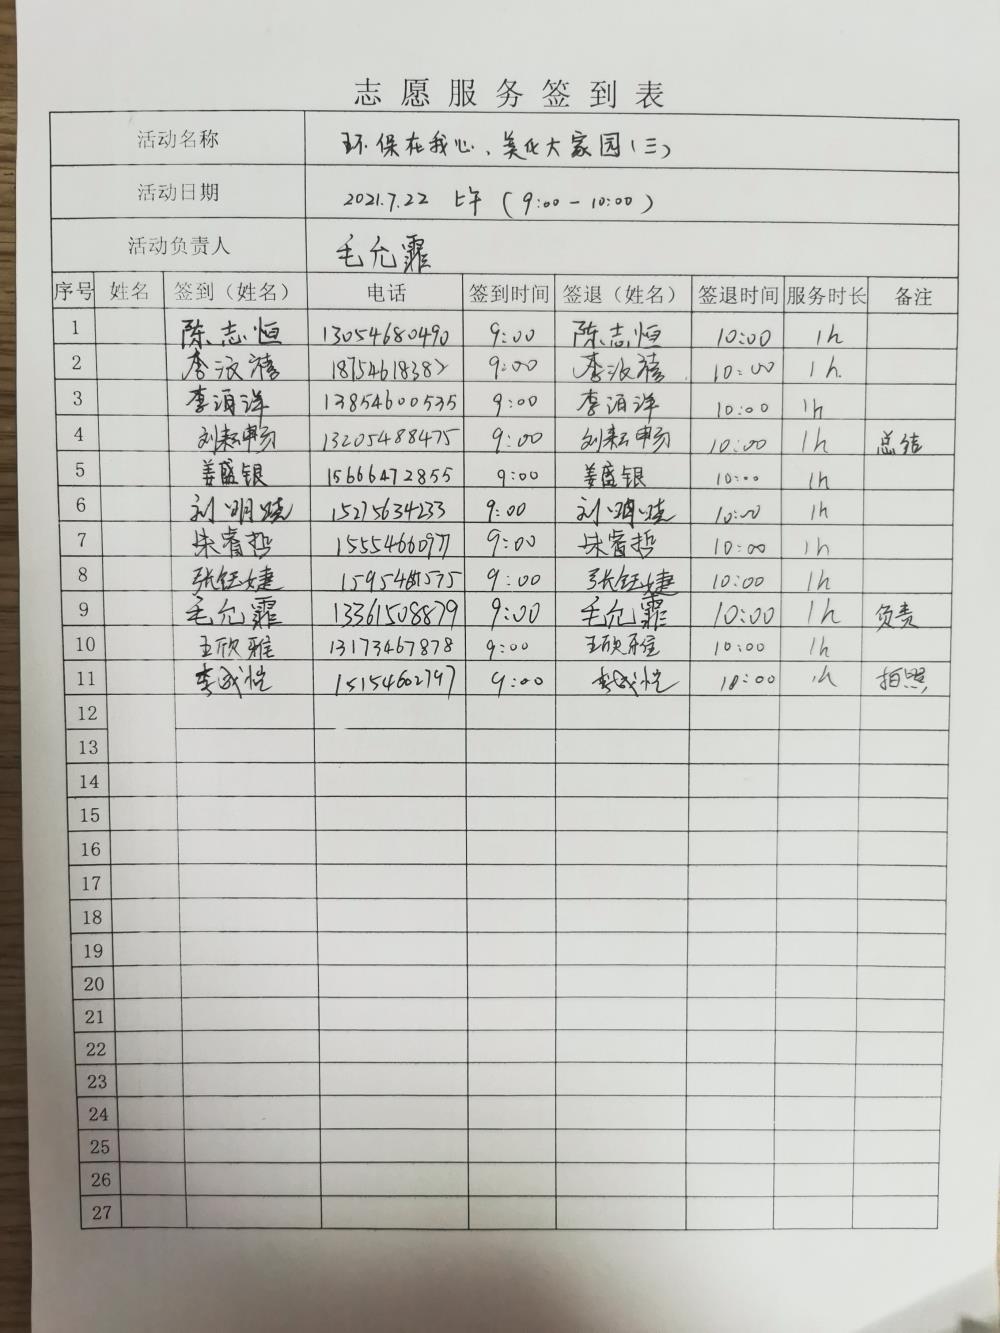 志愿服务签到表
活动名称 环保在我心、美化大家园(三)
活动日期 2021.7.22 上午 (9:00-10:00)
活动负责人 毛允霏
序号 姓名 签到（姓名） 电话 签到时间 签退（姓名） 签退时间 服务时长 备注
1 陈志恒 13054680490 9:00 陈志恒 10:00 1h
2 李 禧 18754618382 9:00 李 禧 10:00 1h
3 李洧洋 13854600535 9:00 李洧洋 10:00 1h
4 刘耘畅 13205488475 9:00 刘耘畅 10:00 1h 总结
5 姜盛银 15666472855 9:00 姜盛银 10:00 1h
6 刘明 15275634233 9:00 刘明 10:00 1h
7 朱睿哲 15554660977 9:00 朱睿哲 10:00 1h
8 张钰婕 9:00 张钰婕 10:00 1h
9 毛允霏 13361508879 9:00 毛允霏 10:00 1h 负责
10 王欣雅 13173467878 9:00 王欣雅 10:00 1h
11 李成恺 15154602797 9:00 李成恺 10:00 1h 拍照
12
13
14
15
16
17
18
19
20
21
22
23
24
25
26
27